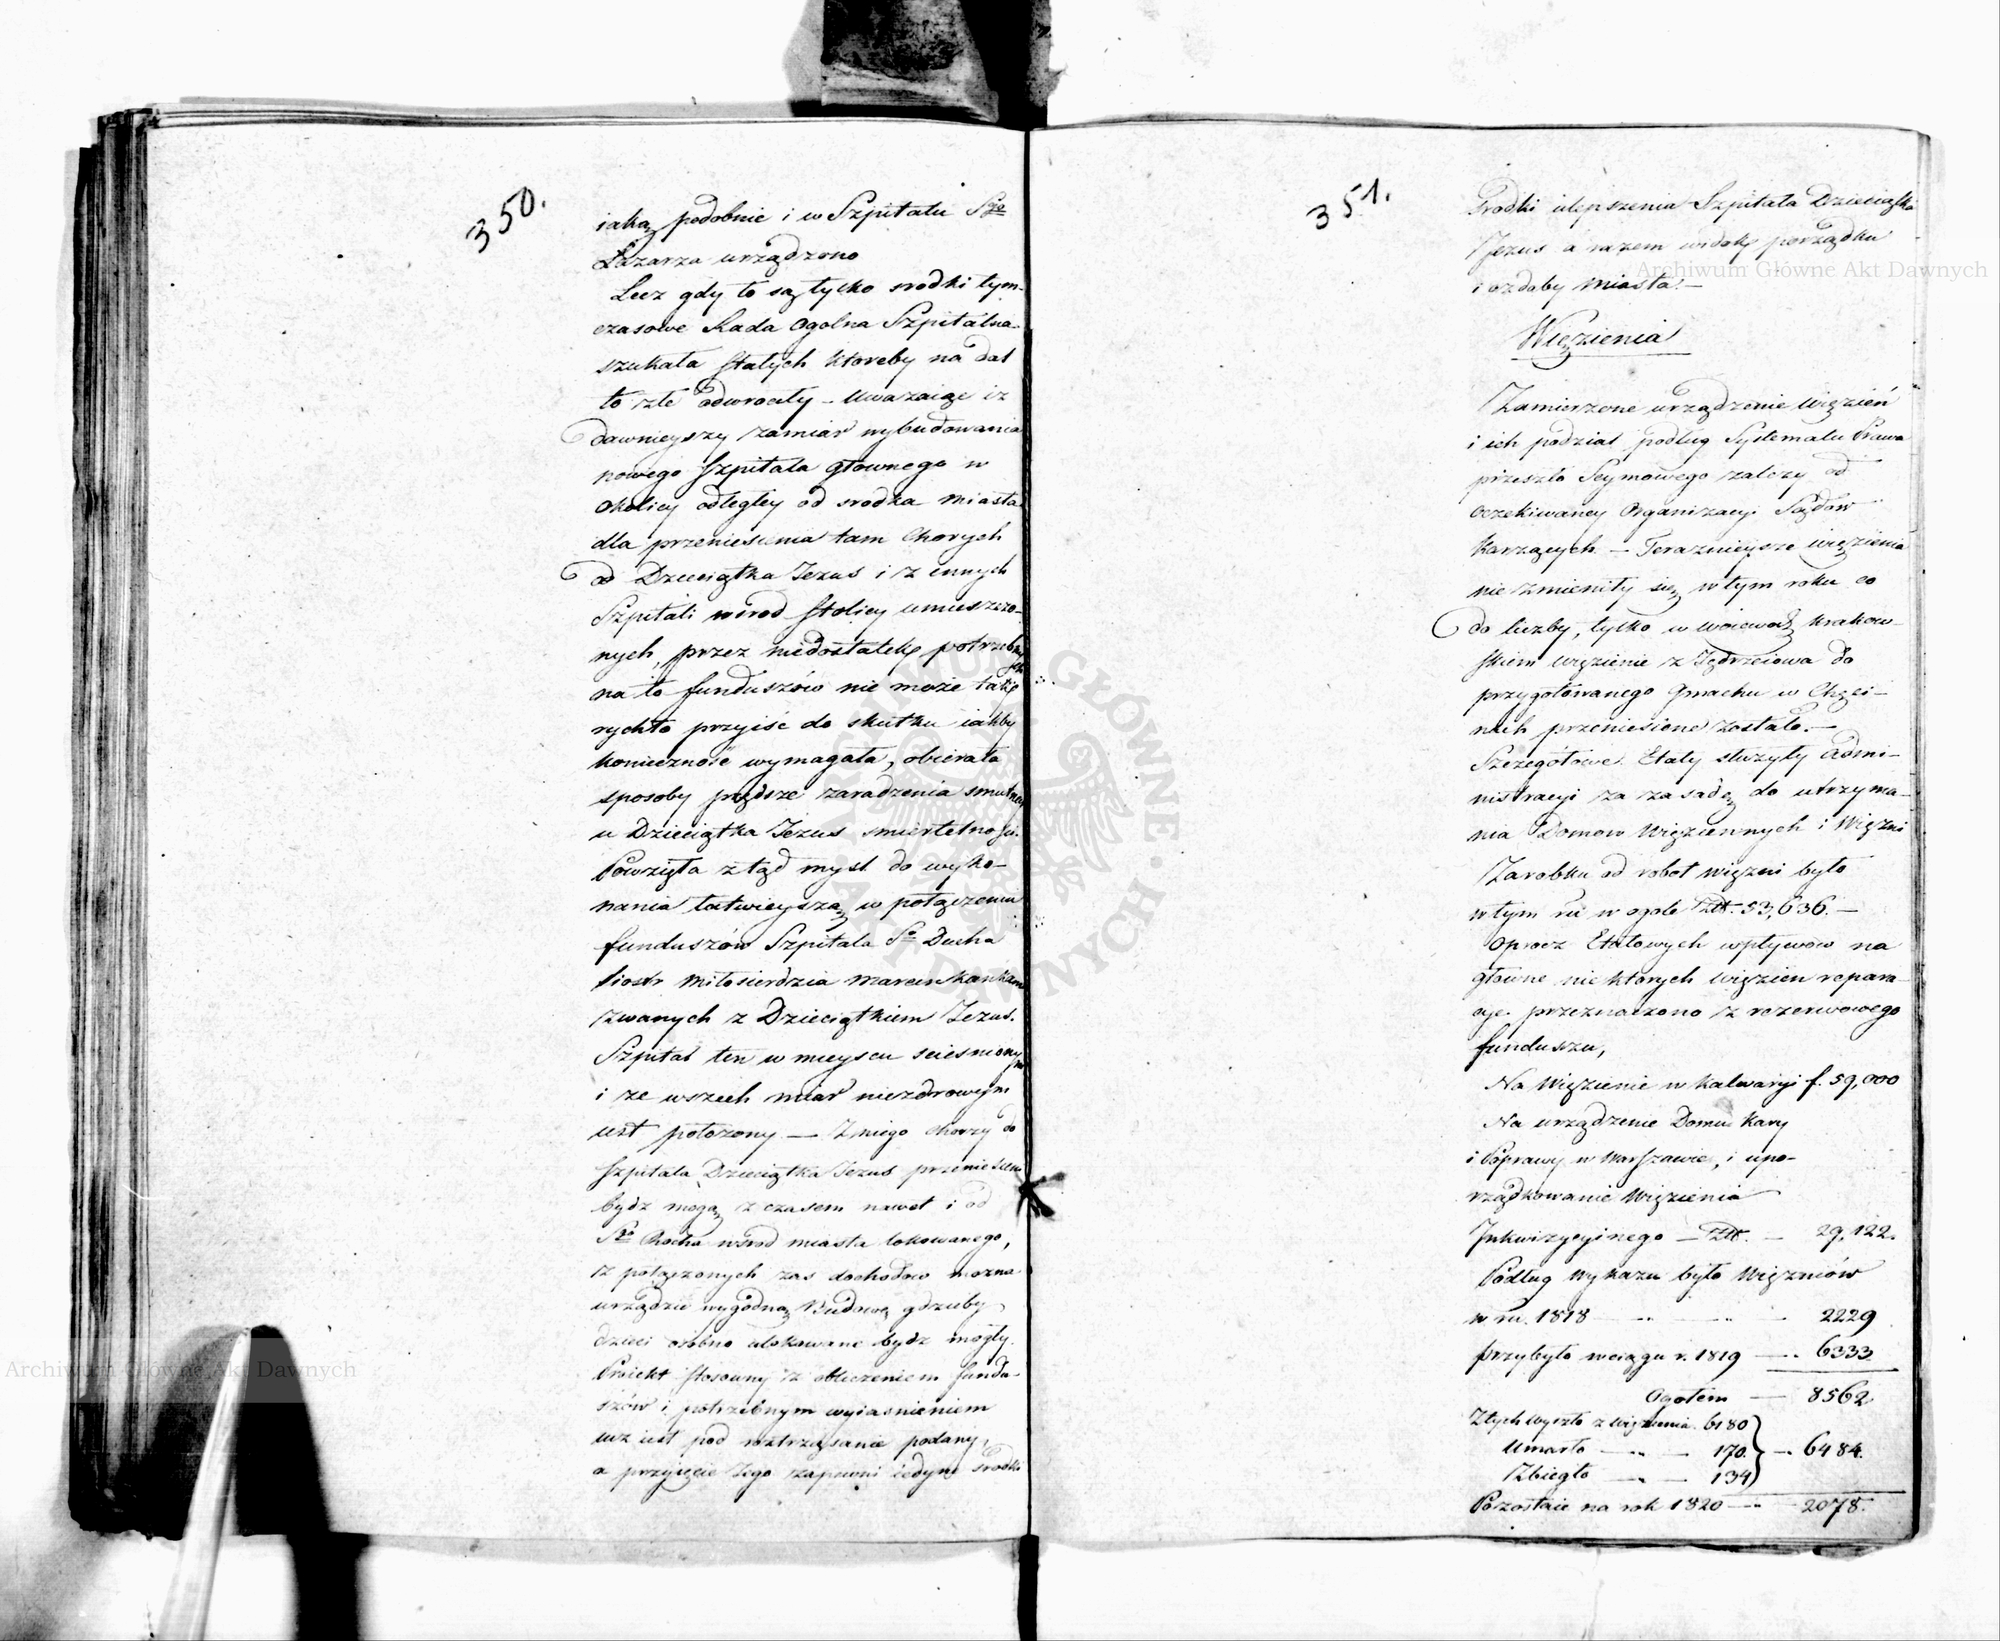 350.
iaką podobnie i w Szpitalu Sgo
Łazarza urządzono
Lecz gdy to są tylko srodki tym-
czasowe Rada Ogolna Szpitalna
szukała stałych ktoreby na dal
to złe odwrociły – Uwazaiąc iz
dawnieyszy zamiar wybudowania
nowego Szpitala głownego w
okolicy odległey od srodka miasta
dla przeniesienia tam Chorych
od Dzieciątka Jezus i z innych
Szpitali wsrod stolicy umieszczo-
nych, przez niedostatek potrzebnych
na to funduszów nie może tak
rychło przyiść do skutku iakby
konieczność wymagała, obierała
sposoby prędsze zaradzenia smutney
u Dzieciątka Jezus smiertelności.
Powzięta ztąd mysl do wyko-
nania łatwieysza, w połączeniu
funduszów Szpitala Sgo Ducha
Siostr Miłosierdzia marcinkankami
zwanych z Dzieciątkiem Jezus.
Szpital ten w mieyscu sciesnionym
i ze wszech miar niezdrowym
iest położony — Z niego chorzy do
Szpitala Dzieciątka Jezus przeniesieni
bydz mogą z czasem nawet i od
Sgo Rocha wsrod miasta lokowanego,
z połączonych zas dochodow mozna
urządzic wygodną Budowę gdzieby
dzieci osobno ulokowane bydz mogły.
Proiekt stosowny z obliczeniem fundu-
szów i potrzebnym wyiasnieniem
iuz iest pod roztrząsanie podany,
a przyięcie Jego zapewni iedynie srodki
351.
srodki ulepszenia Szpitala Dzieciątka
Jezus a razem widokę porządku
i ozdoby Miasta. —
Więzienia
Zamierzone urządzenie więzień
i ich podział podług Systematu Prawa
przeszło Seymowego zalezy od
oczekiwaney Organizacyi Sądów
Karzących — Teraznieysze więzienia
nie zmieniły się w tym roku co
do liczby, tylko w woiewodz. Krakow-
skiem więzienie z Jędrzeiowa do
przygotowanego Gmachu w Chęci-
nach przeniesione zostało. —
Szczegółowe Etaty służyły Admi-
nistracyi za zasadę do utrzyma-
nia Domow Więziennych i Więzni
Zarobku od robot więzni było
w tym ru w ogole Złł. 53,636. —
Oprocz Etatowych wpływów na
głowne niektorych więzien repara-
cye przeznaczono z rezerwowego
funduszu,
Na Więzienie w Kalwaryi f. 59,000
Na urządzenie Domu Kary
i Poprawy w Warszawie, i upo-
rządkowanie Więzienia
Inkwizycyinego — Złł. — 29,122.
Podług Wykazu było Więzniów
w ru. 1818 — 2229
przybyło w ciągu r. 1819 — 6333
Ogołem — 8562
Z tych wyszło z więzienia 6180
Umarło — 170 — 6484.
Zbiegło — 134
Pozostaie na rok 1820 — 2078.
Archiwum Główne Akt Dawnych
Archiwum Główne Akt Dawnych